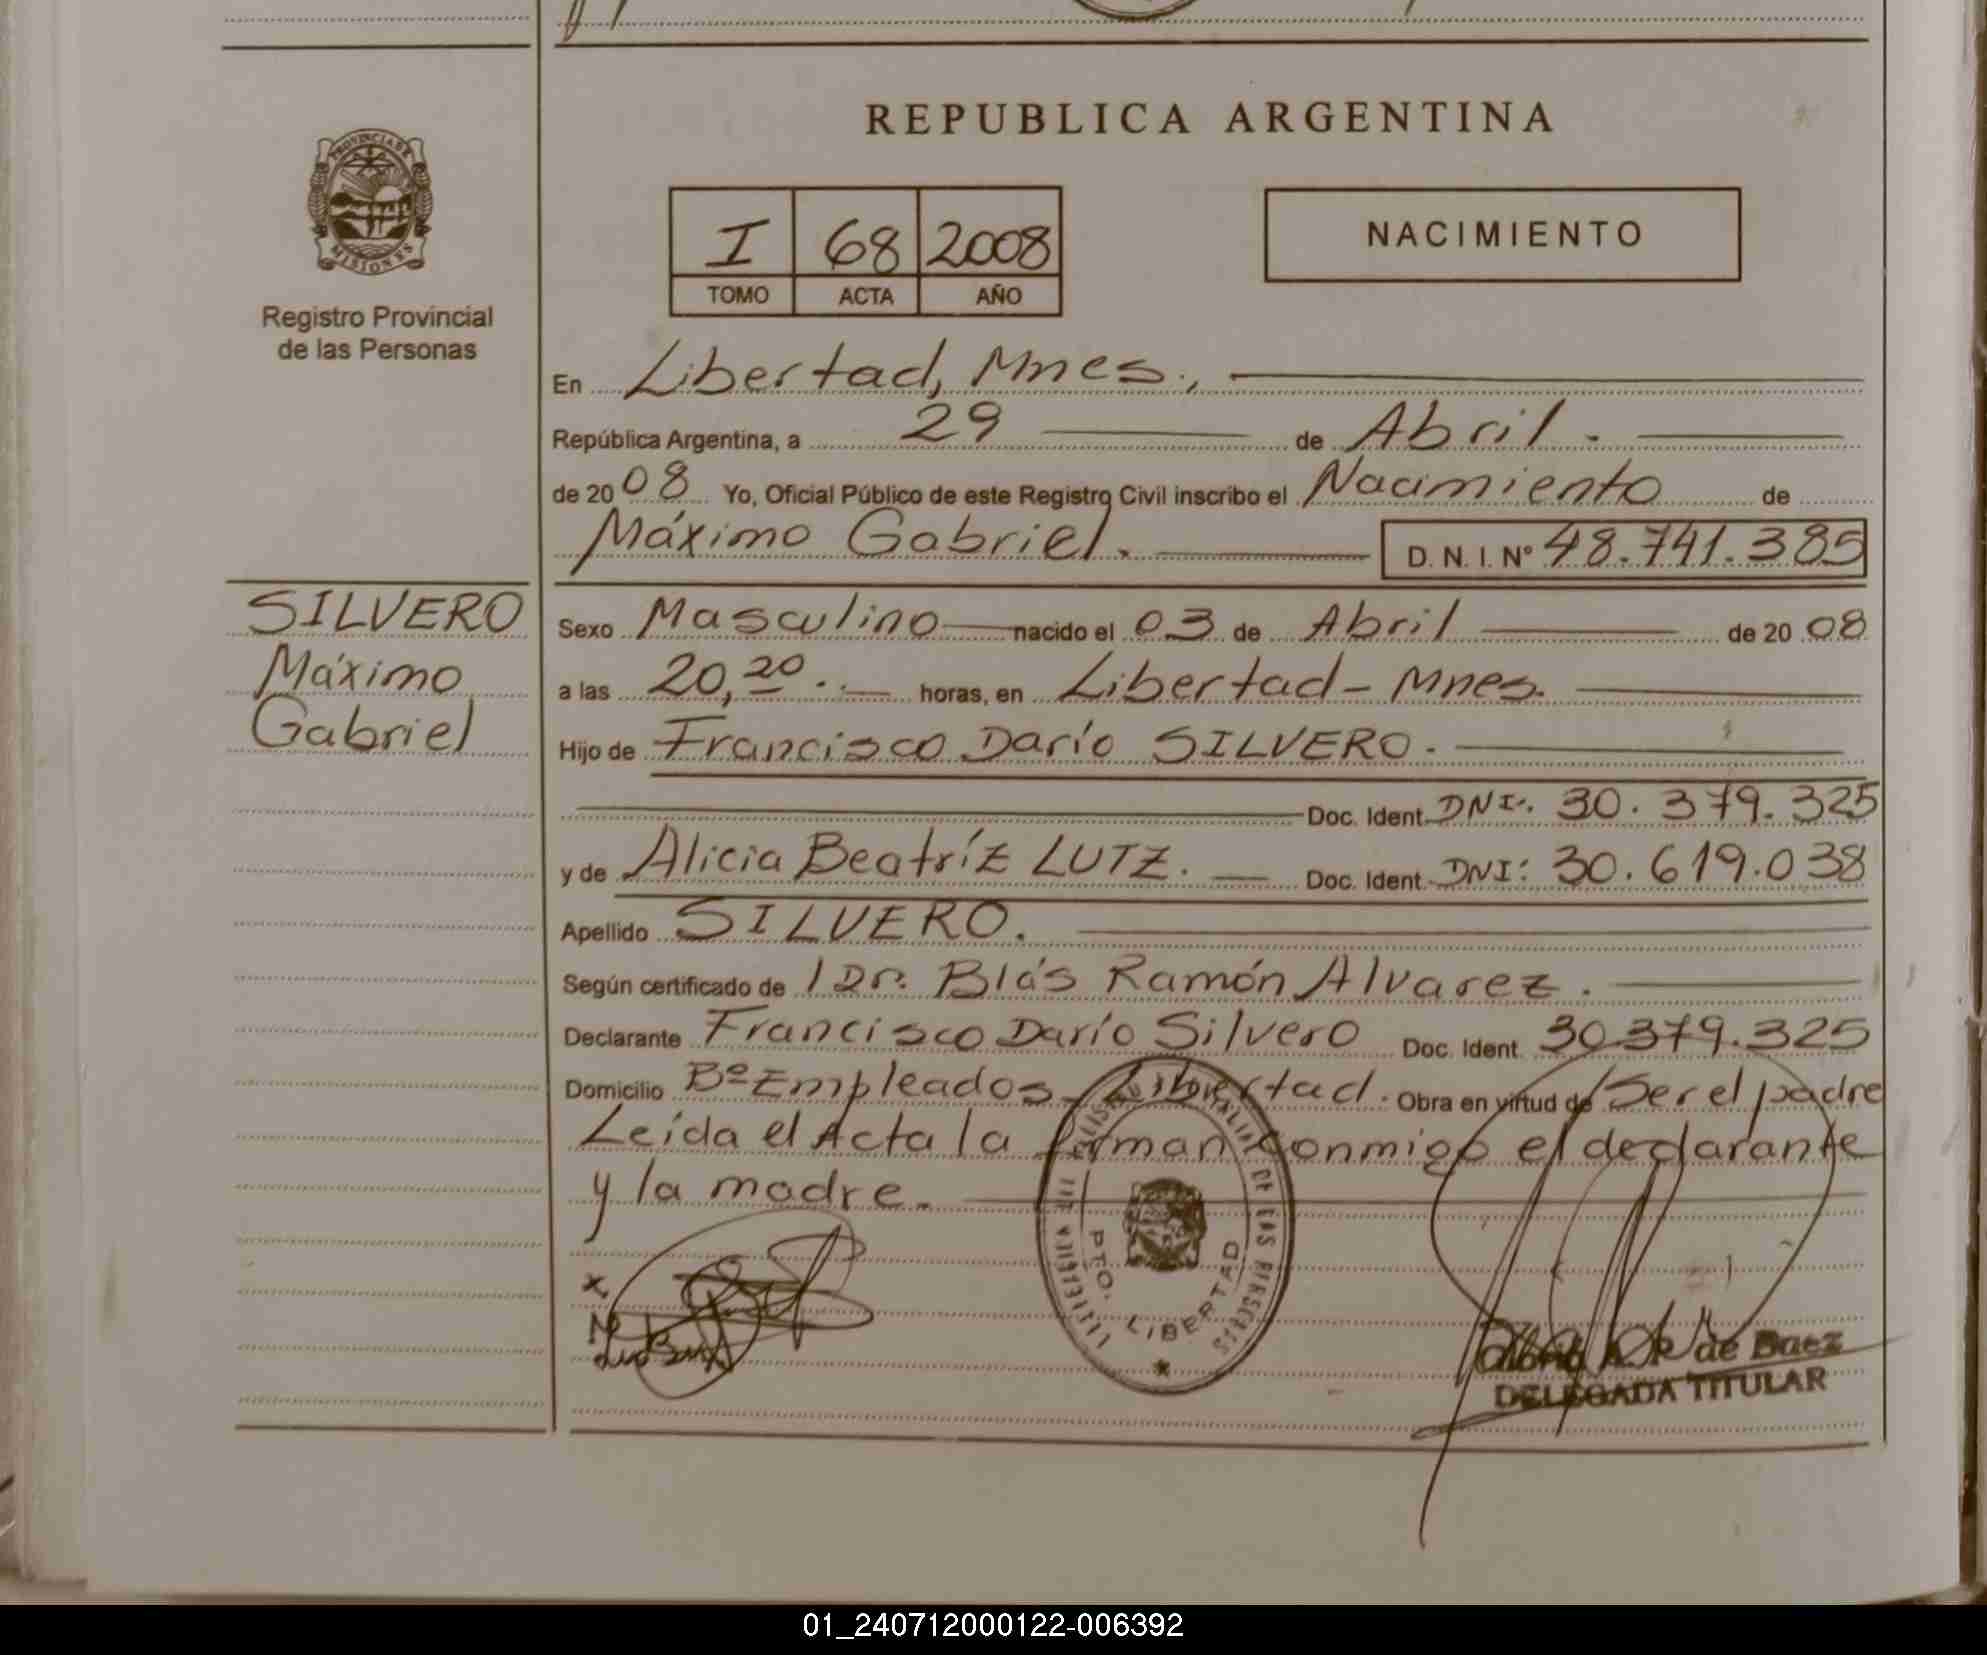 REPUBLICA ARGENTINA
PROVINCIA DE
MISIONES
Registro Provincial
de las Personas
I 68 2008
TOMO ACTA AÑO
NACIMIENTO
En Libertad, Mnes.,
República Argentina, a 29 de Abril.
de 2008 Yo, Oficial Público de este Registro Civil inscribo el Nacimiento de
Máximo Gabriel. D. N. I. Nº 48.741.385
SILVERO
Máximo
Gabriel
Sexo Masculino nacido el 03 de Abril de 2008
a las 20,20. horas, en Libertad - Mnes.
Hijo de Francisco Darío SILVERO.
Doc. Ident. DNI: 30.379.325
y de Alicia Beatríz LUTZ. Doc. Ident. DNI: 30.619.038
Apellido SILVERO.
Según certificado de l Dr. Blás Ramón Alvarez.
Declarante Francisco Darío Silvero Doc. Ident. 30.379.325
Domicilio Bº Empleados - Libertad. Obra en virtud de Ser el padre
Leída el Acta la firman conmigo el declarante
y la madre.
DE LAS PERSONAS
PTO. LIBERTAD
de Baez
DELEGADA TITULAR
01_240712000122-006392